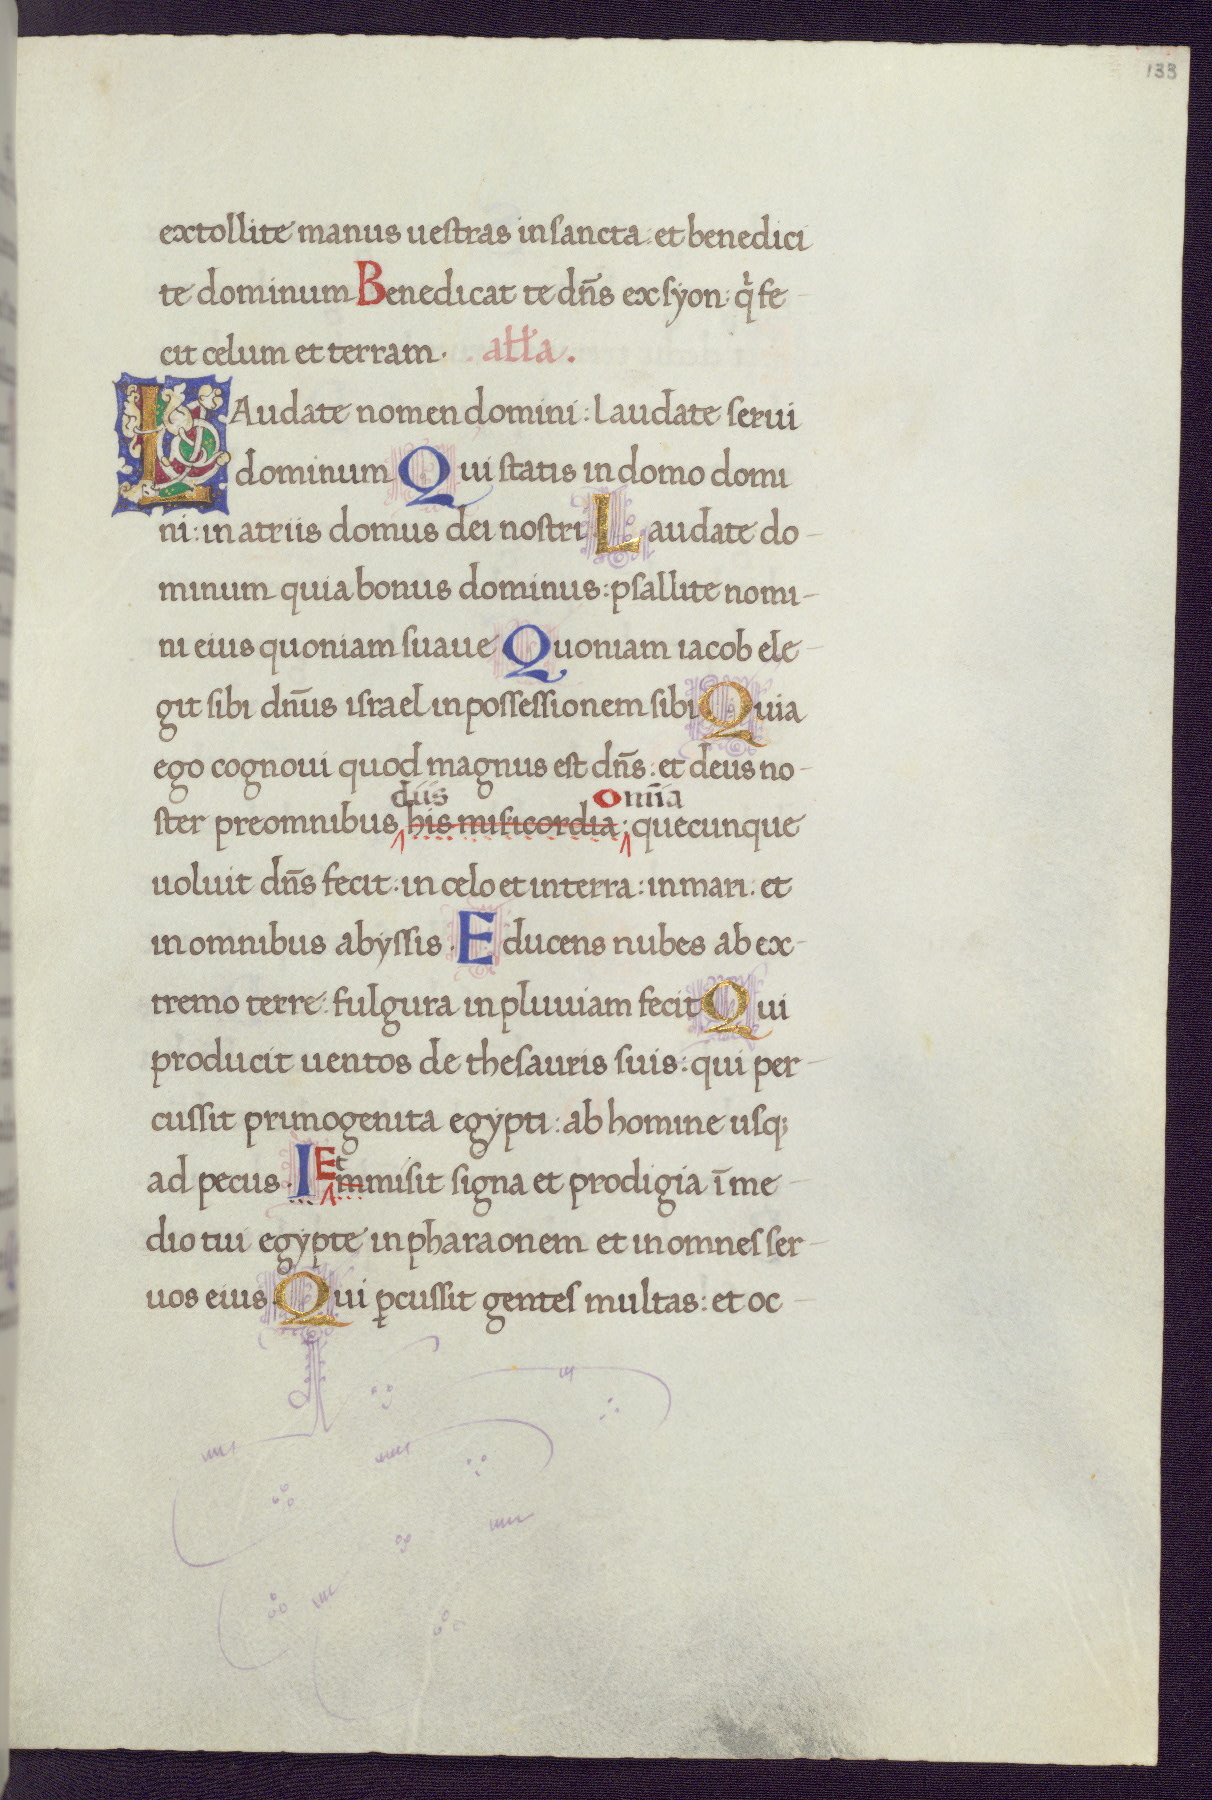 133
extollite manus uestras in sancta: et benedici
te dominum Benedicat te dn̄s ex syon: qi fe
cit celum et terram. alła.
LAudate nomen domini: laudate serui
dominum Qui statis in domo domi
ni: in atriis domus dei nostri Laudate do-
minum quia bonus dominus: psallite nomi-
ni eius quoniam suaue Quoniam iacob ele-
git sibi dn̄us israel in possessionem sibi Quia
ego cognoui quod magnus est dn̄s: et deus no-
diis omīa
ster preomnibus his misicordia: quecunque
uoluit dn̄s fecit: in celo et in terra: in mari: et
in omnibus abyssis. Educens nubes ab ex-
tremo terre: fulgura in pluuiam fecit Qui
producit uentos de thesauris suis: qui per-
cussit primogenita egypti: ab homine usq;
Et
ad pecus. Immisit signa et prodigia ī me-
dio tui egypte in pharaonem et in omnes ser-
uos eius Qui ꝑcussit gentes multas: et oc-